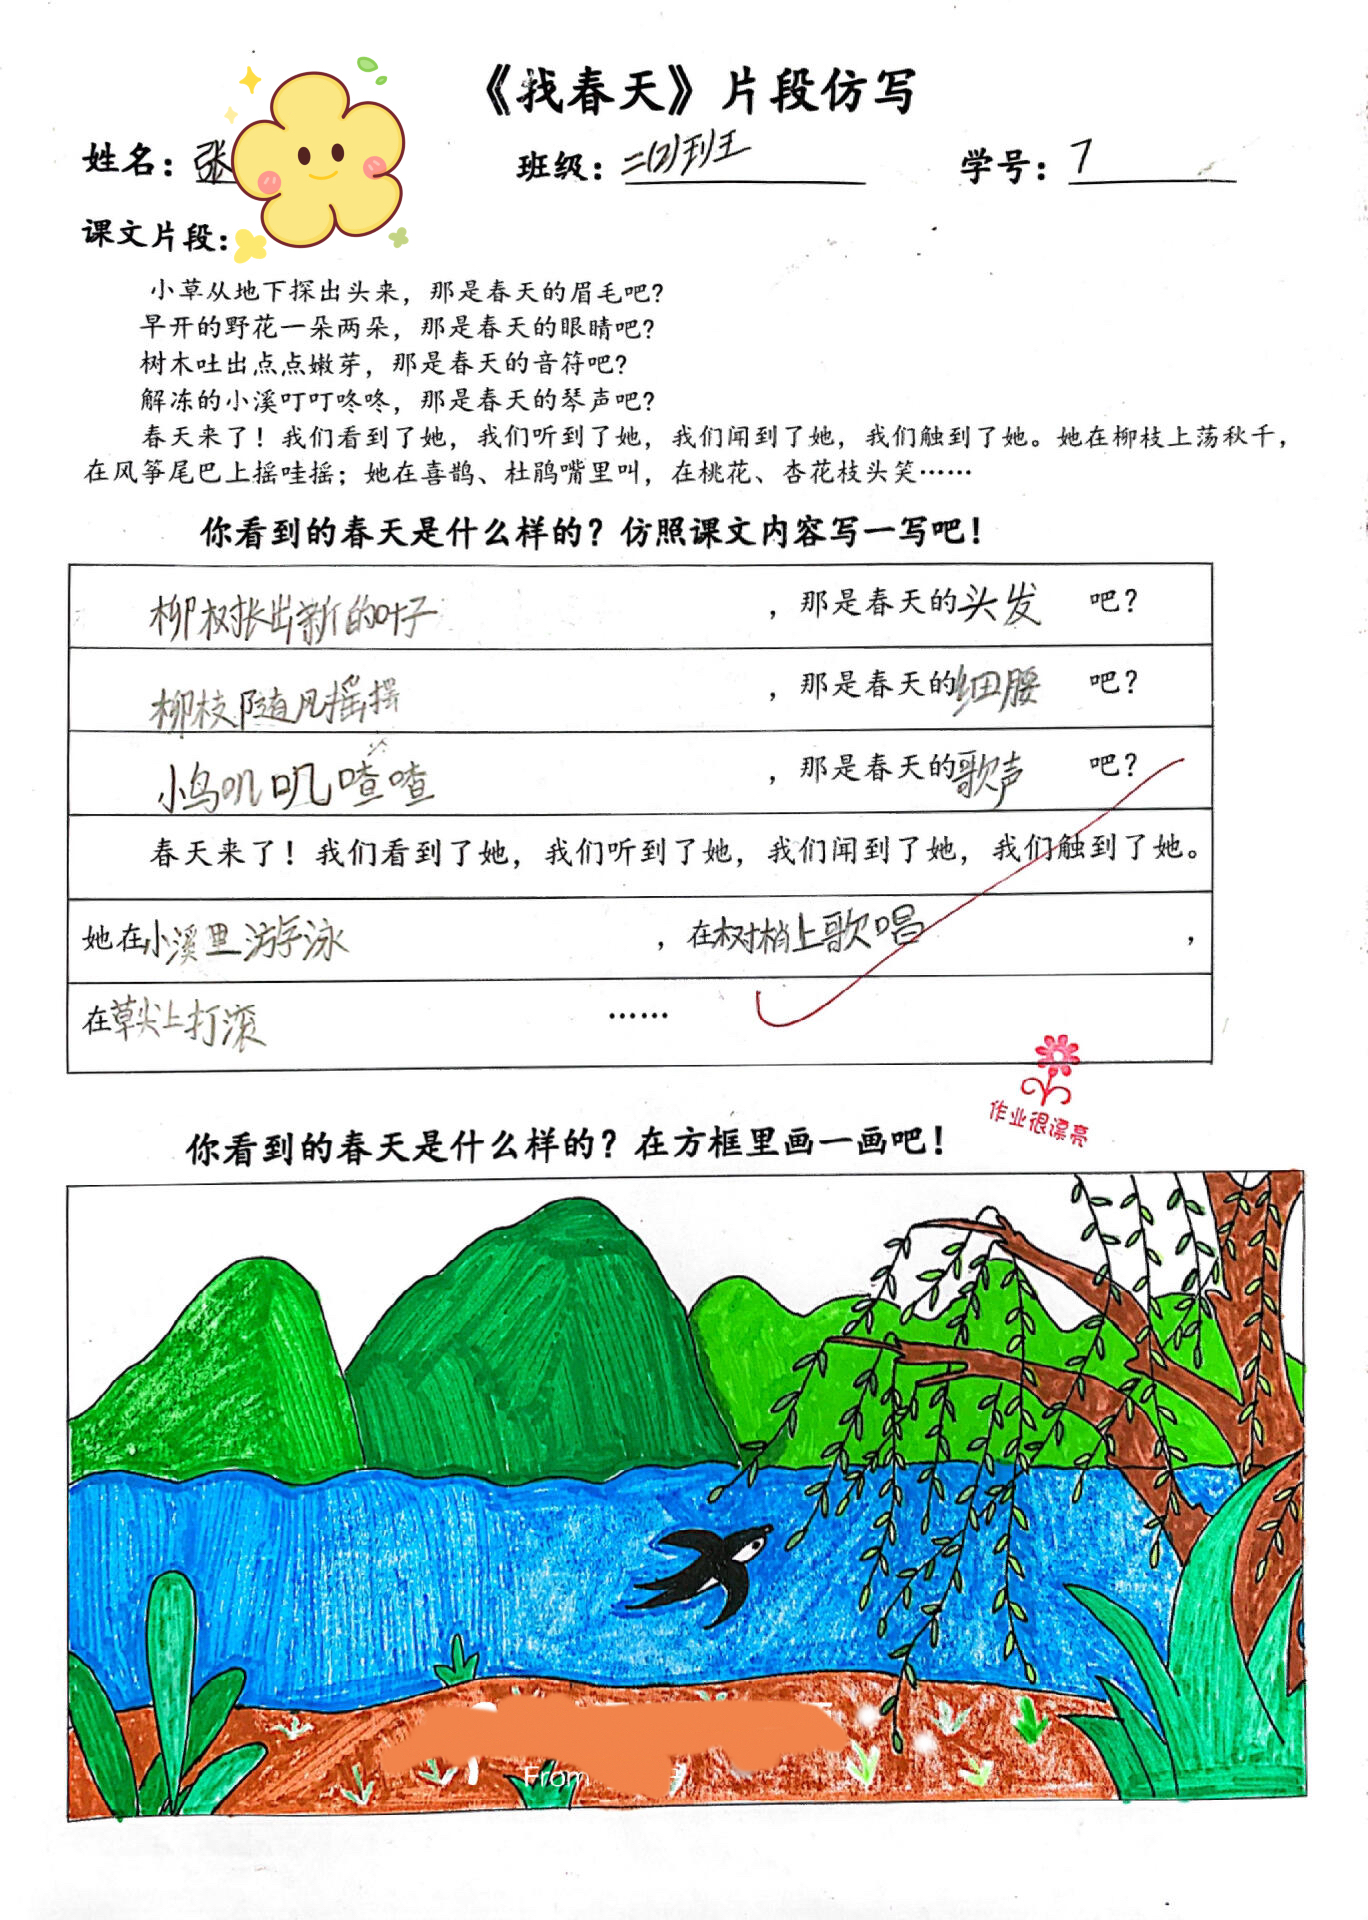 《找春天》片段仿写
姓名：张 班级：二(2)班 学号：7
课文片段：
小草从地下探出头来，那是春天的眉毛吧？
早开的野花一朵两朵，那是春天的眼睛吧？
树木吐出点点嫩芽，那是春天的音符吧？
解冻的小溪叮叮咚咚，那是春天的琴声吧？
春天来了！我们看到了她，我们听到了她，我们闻到了她，我们触到了她。她在柳枝上荡秋千，
在风筝尾巴上摇哇摇；她在喜鹊、杜鹃嘴里叫，在桃花、杏花枝头笑……
你看到的春天是什么样的？仿照课文内容写一写吧！
柳树长出新的叶子，那是春天的头发吧？
柳枝随风摇摆，那是春天的细腰吧？
小鸟叽叽喳喳，那是春天的歌声吧？
春天来了！我们看到了她，我们听到了她，我们闻到了她，我们触到了她。
她在小溪里游泳，在树梢上歌唱，
在草尖上打滚……
作业很漂亮
你看到的春天是什么样的？在方框里画一画吧！
From